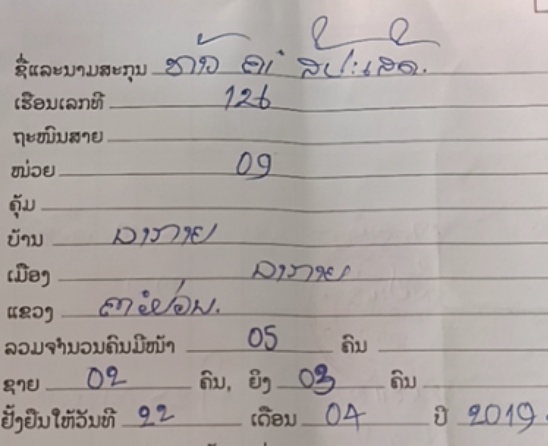 ຊື່ແລະນາມສະກຸນ ທ້າວ ຄຳ
ເຮືອນເລກທີ 126
ຖະໜົນສາຍ
ໜ່ວຍ 09
ຄຸ້ມ
ບ້ານ ລາກາຍ
ເມືອງ ລາກາຍ
ແຂວງ
ລວມຈຳນວນຄົນມີໜ້າ 05 ຄົນ
ຊາຍ 02 ຄົນ, ຍິງ 03 ຄົນ
ຢັ້ງຢືນໃຫ້ວັນທີ 22 ເດືອນ 04 ປີ 2019